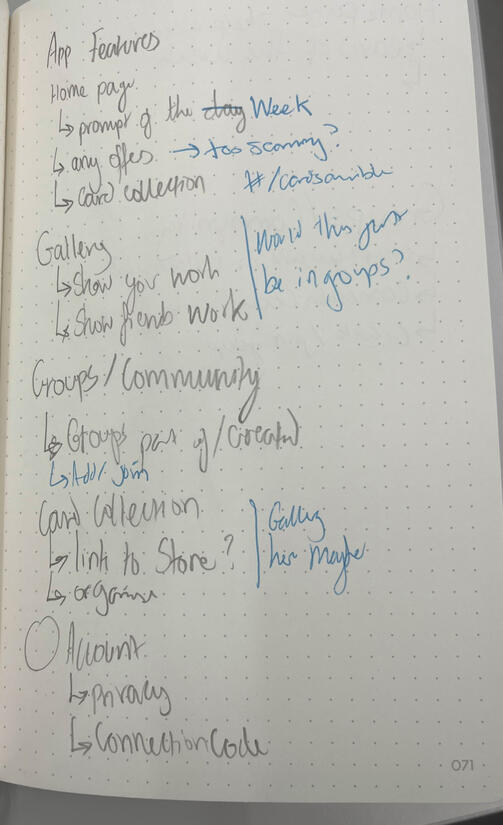 App Features
Home page
↳ prompt of the day Week
↳ any offes → too scammy?
↳ Card collection #/
Gallery
↳ Show you work
↳ Show friends work
Would this just
be in groups?
Groups/Community
↳ Groups part of/Created
↳ Add/Join
Card Collection
↳ link to Store?
↳ organise
Gallery
her Maybe
Account
↳ privacy
↳ Connection Code
071